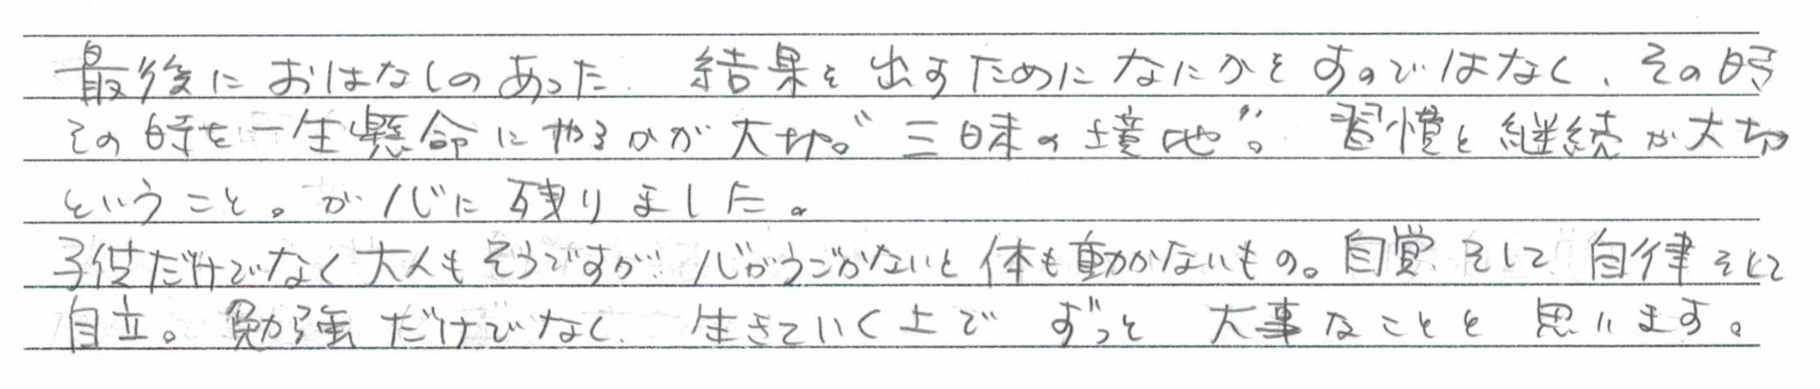 最後に おはなしの あった 結果を 出すために なにかを すのではなく、その時
その時を一生懸命に やるかが 大切。"三昧の境地"。 習慣と継続が大切
ということ。が 心に 残りました。
子供だけでなく 大人も そうですが 心がうごかないと 体も動かないもの。自覚 そして 自律 そして
自立。勉強 だけでなく 生きていく上で ずっと 大事なことと 思います。